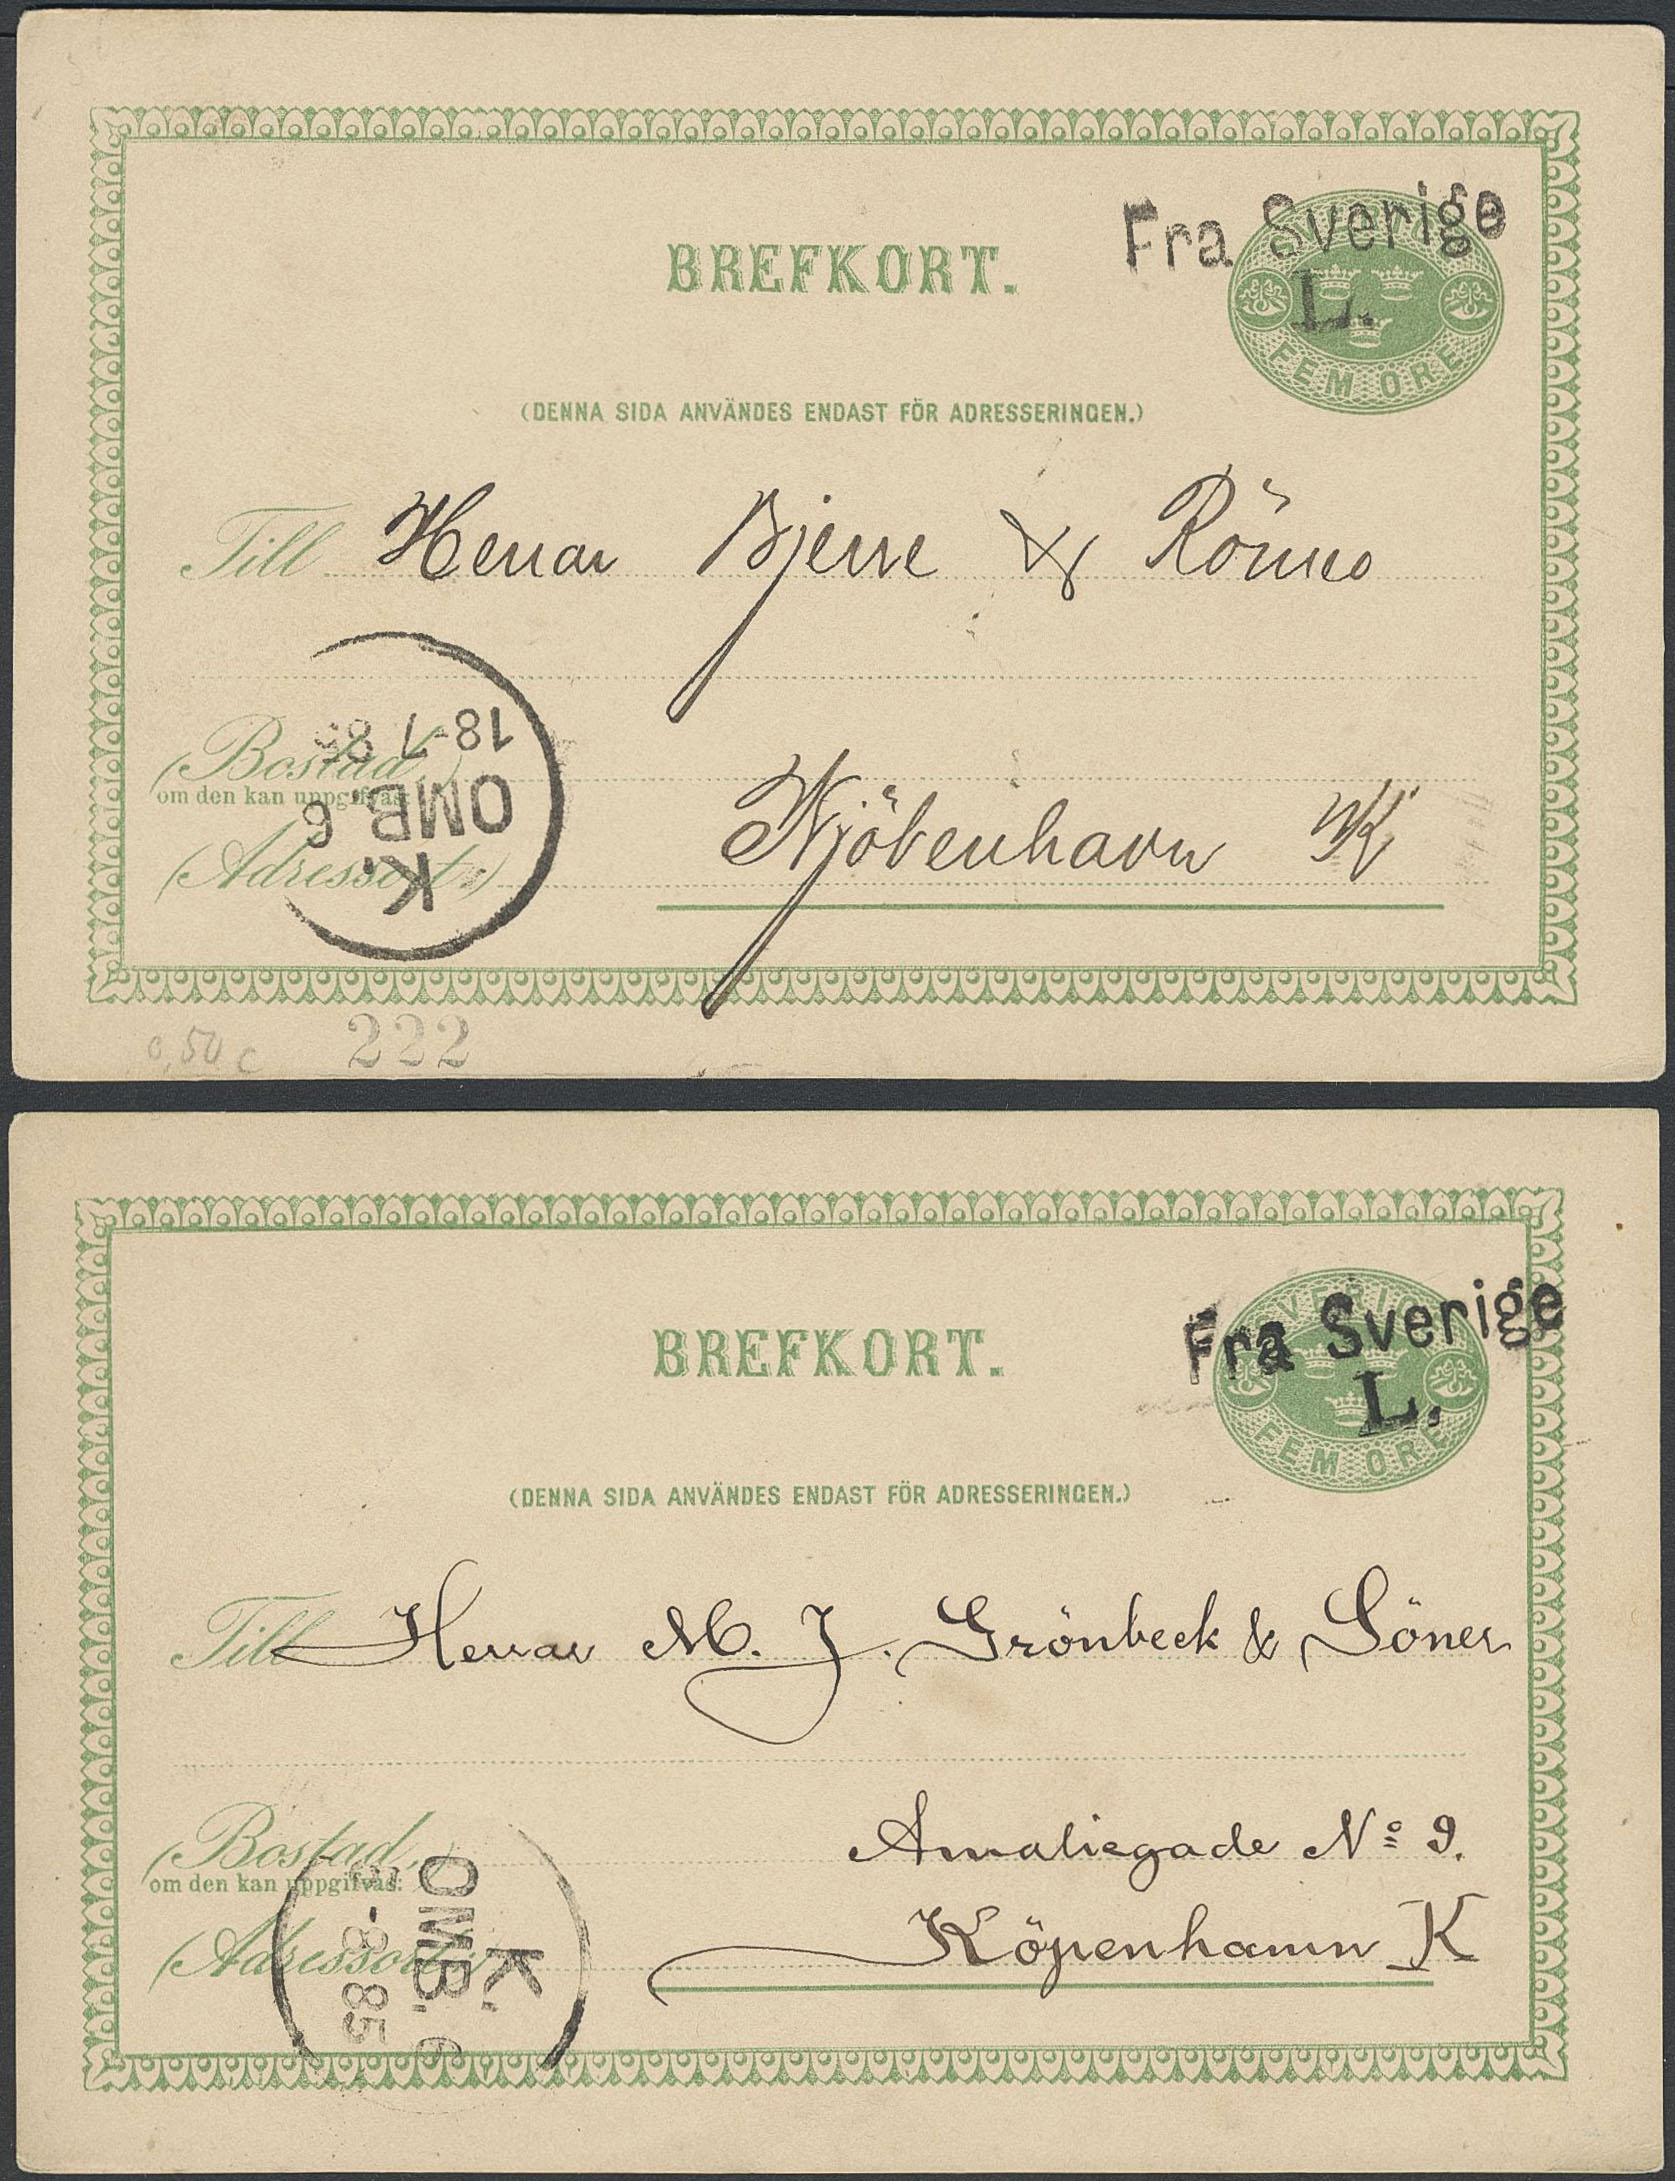 BREFKORT.
Fra Sverige
L.
FEM ÖRE
(DENNA SIDA ANVÄNDES ENDAST FÖR ADRESSERINGEN.)
Till Herrar Bjerre & Rönne
(Bostad,)
om den kan uppgifvas:
(Adressort:)
Kjöbenhavn K
K.
OMB. 6
18-7 85
0,50 c 222
BREFKORT.
SVERIGE
Fra Sverige
L.
FEM ÖRE
(DENNA SIDA ANVÄNDES ENDAST FÖR ADRESSERINGEN.)
Till Herrar M. J. Grönbeck & Söner
Amaliegade No 9.
(Bostad,)
om den kan uppgifvas:
(Adressort:)
Köpenhamn K
K.
OMB. 6
8 85